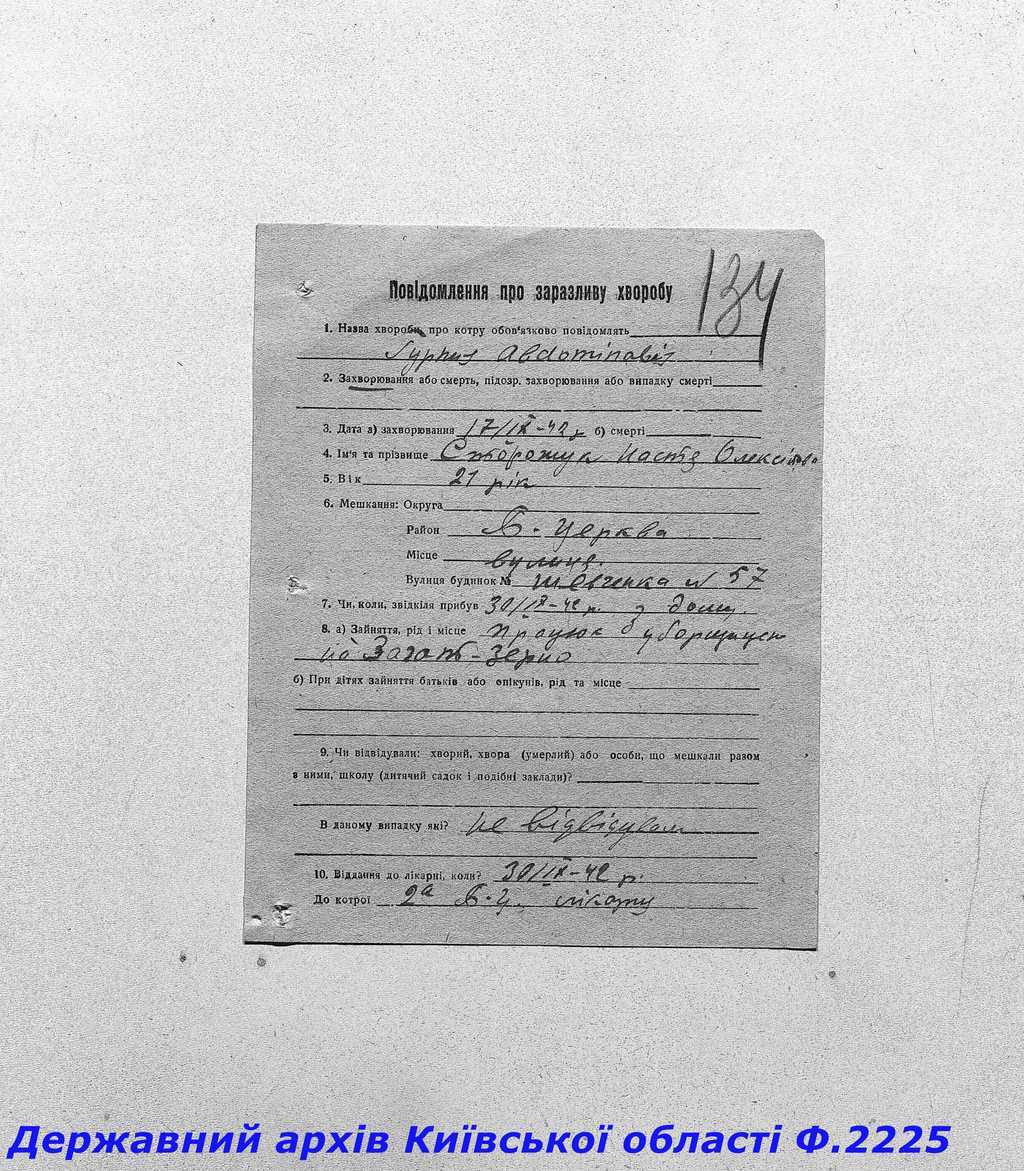 134
Повідомлення про заразливу хворобу
1. Назва хвороби, про котру обов'язково повідомлять
Typhus Abdominalis
2. Захворювання або смерть, підозр. захворювання або випадку смерті
3. Дата а) захворювання 17/IX-42 р б) смерті
4. Ім'я та прізвище Сторожук Настя Олексіївна
5. Вік 21 рік
6. Мешкання: Округа
Район Б. Церква
Місце вулиця.
Вулиця будинок № Шевченка № 57
7. Чи, коли, звідкіля прибув 30/IX-42 р. з дому.
8. а) Зайняття, рід і місце працює уборщицею
на Загот-Зерно
б) При дітях зайняття батьків або опікунів, рід та місце
9. Чи відвідували: хворий, хвора (умерлий) або особи, що мешкали разом
з ними, школу (дитячий садок і подібні заклади)?
В даному випадку які? не відвідувала
10. Віддання до лікарні, коли? 30/IX-42 р.
До котрої 2а Б-Ц.
Державний архів Київської області Ф.2225